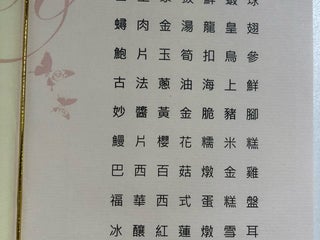 球
蟳肉金湯龍皇翅
鮑片玉筍扣烏參
古法蔥油海上鮮
妙醬黃金脆豬腳
鰻片櫻花糯米糕
巴西百菇燉金雞
福華西式蛋糕盤
冰釀紅蓮燉雪耳